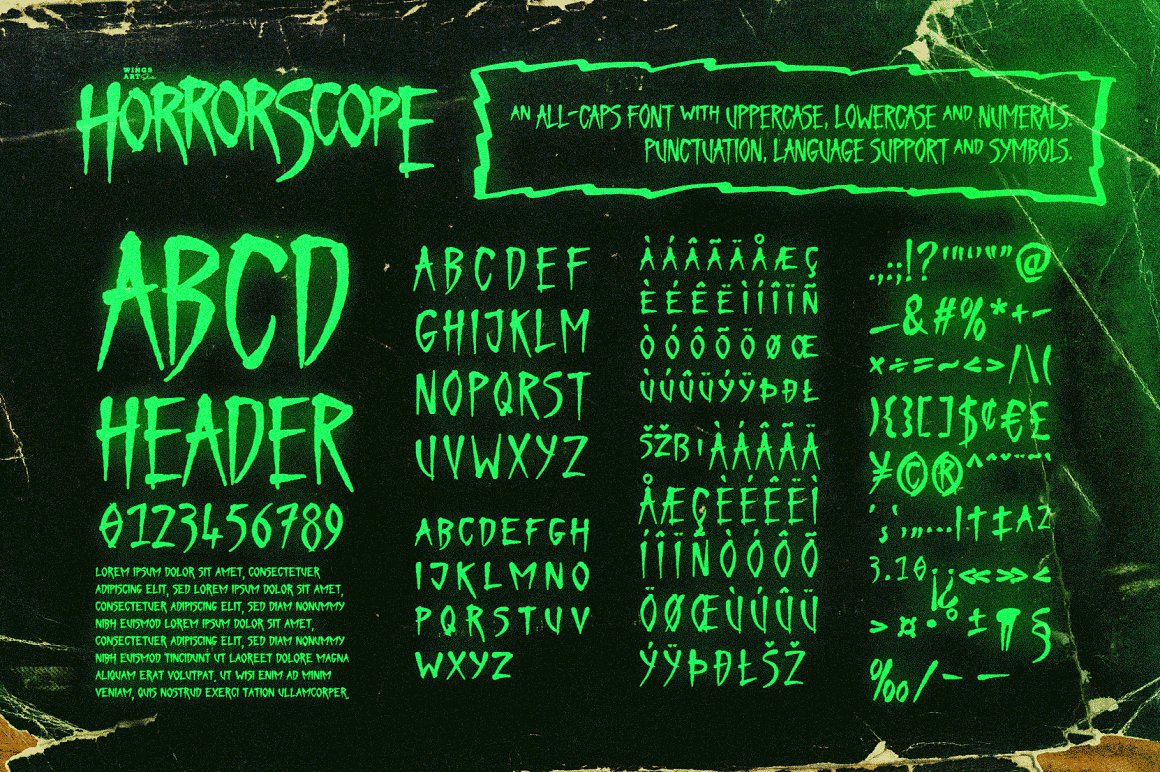 WINGS
ART Studio
HORRORSCOPE
AN ALL-CAPS FONT WITH UPPERCASE, LOWERCASE AND NUMERALS.
PUNCTUATION, LANGUAGE SUPPORT AND SYMBOLS.
ABCD
HEADER
0123456789
LOREM IPSUM DOLOR SIT AMET, CONSECTETUER
ADIPISCING ELIT, SED LOREM IPSUM DOLOR SIT AMET,
CONSECTETUER ADIPISCING ELIT, SED DIAM NONUMMY
NIBH EUISMOD LOREM IPSUM DOLOR SIT AMET,
CONSECTETUER ADIPISCING ELIT, SED DIAM NONUMMY
NIBH EUISMOD TINCIDUNT UT LAOREET DOLORE MAGNA
ALIQUAM ERAT VOLUTPAT. UT WISI ENIM AD MINIM
VENIAM, QUIS NOSTRUD EXERCI TATION ULLAMCORPER.
ABCDEF
GHIJKLM
NOPQRST
UVWXYZ
ABCDEFGH
IJKLMNO
PQRSTUV
WXYZ
ÀÁÂÃÄÅÆÇ
ÈÉÊËÌÍÎÏÑ
ÒÓÔÕÖØŒ
ÙÚÛÜÝŸÞÐŁ
ŠŽßıÀÁÂÃÄ
ÅÆÇÈÉÊËÌ
ÍÎÏÑÒÓÔÕ
ÖØŒÙÚÛÜ
ÝŸÞÐŁŠŽ
.,:;!?'"‘’“”@
_&#%*+-
×÷=~<>/|\(
){}[]$¢€£
¥©®^ˆˇ¨˜`
´¸‚„…|†‡ª2
3.10¡¿«»‹
›¤•°±¶§
‰⁄–—